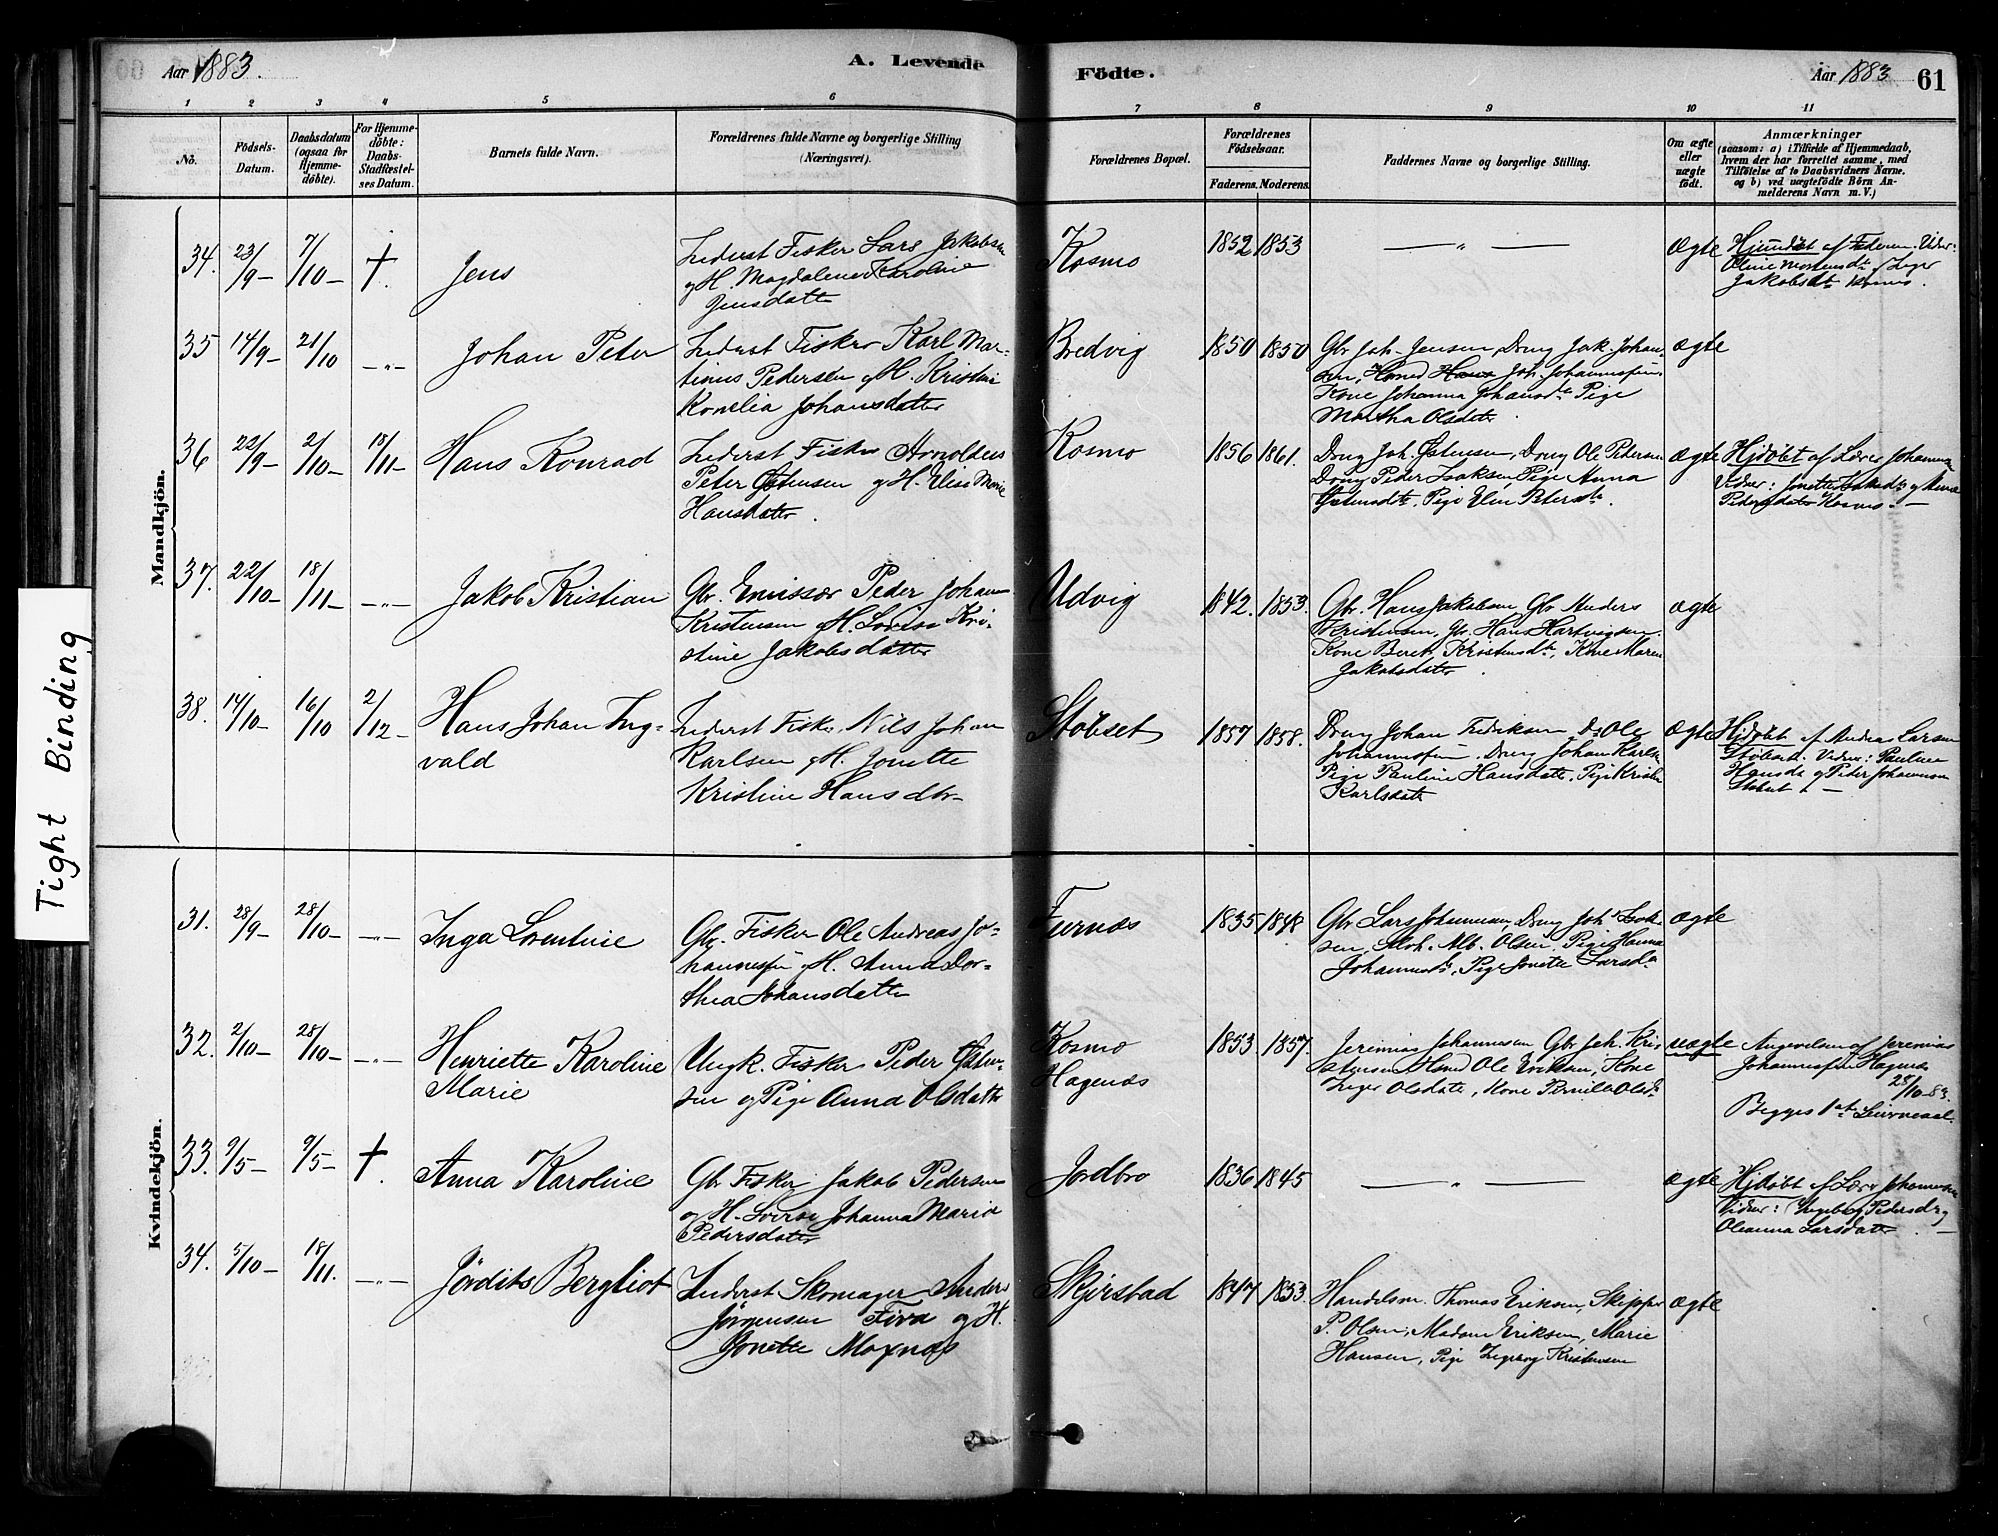 Aar 1883.
A. Levende
Födte.
Aar 1883
61
1 2 3 4 5 6 7 8 9 10 11
No.
Födsels-
Datum.
Daabsdatum
(ogsaa for
Hjemme-
döbte).
For Hjemme-
döbte:
Daabs-
Stadfæstel-
ses Datum.
Barnets fulde Navn.
Forældrenes fulde Navne og borgerlige Stilling
(Næringsvei).
Forældrenes Bopæl.
Forældrenes
Födselsaar.
Faderens. Moderens.
Faddernes Navne og borgerlige Stilling.
Om ægte
eller
uægte
födt.
Anmærkninger
(saasom: a) i Tilfælde af Hjemmedaab,
hvem der har forrettet samme, med
Tilföielse af to Daabsvidners Navne.
og b) ved uægtefödte Börn An-
melderens Navn m. V.)
Tight Binding
Mandkjön.
34. 23/9- 7/10- + Jens
Inderst Fisker Lars Jakobsen
og H. Magdalena Karoline
Jensdatter
Kosmo
1852 1853
— " —
Ægte
Hjemdøbt af Faderen. Vidner:
Jakobsdtr Kosmo.
35 14/9- 21/10 -"- Johan Peter
Inderst Fisker Karl Mar-
tinus Pedersen og H. Kristine
Kornelia Johansdatter
Bredvig
1850 1850
Gbr Joh. Jensen, Dreng Jak. Johan-
sen, Hans Joh. Johannessen.
Kone Johanna Johansdtr Pige
Martha Olsdatter.
ægte
36 22/9- 2/10- 18/11- Hans Konrad
Inderst Fisker Arnoldus
Peter Østensen og H. Elise Marie
Hansdatter.
Kosmo
1856 1861.
Dreng Joh. Østensen, Dreng Ole Pedersen
Dreng Peder Isaksen, Pige Anna
Østensdtr, Pige Elen Petersdtr.
ægte
Hjdøbt af Lærer Johannesen
Vidner: Jonette
Pedersdatter Kosmo. —
37. 22/10- 18/11- -"- Jakob Kristian
Gbr. Emissær Peder Johan
Kristensen og H. Lovise Kri-
stine Jakobsdatter
Udvig
1842. 1853.
Gbr. Hans Jakobsen Gbr Anders
Kristensen, Gbr. Hans Hartvigsen.
Kone Beret Kristensdtr, Kone Maren
Jakobsdatter
ægte
38. 14/10- 16/10 2/12- Hans Johan Ing-
vald
Inderst Fisker Nils Johan
Karlsen og H. Jonette
Kristine Hansdtr-
Støbset
1857 1858.
Dreng Johan Fedriksen Do Ole
Johannessen. Dreng Johan Karlsen
Pige Pauline Hansdatter, Pige Kristine
Karlsdatter
Ægte
Hjdøbt af Andrea Larsen
Støbset. Vidner: Pauline
Hansdtr og Peder Johannesen
Støbset. —
Kvindekjön.
31. 28/9- 28/10- -"- Inga Lorentine
Gbr. Fisker Ole Andreas Jo-
hannessen og H. Anna Dor-
thea Johansdatter
Furnæs
1835 1848
Gbr Lars Johannesen, Dreng Joh. Isak-
sen, Alb. Olsen, Pige Hanna
Johannesdtr, Pige Jonette Larsdtr
ægte
32. 2/10- 28/10- -"- Henriette Karoline
Marie
Ungk. Fisker Peder Østen-
sen og Pige Anna Olsdatter
Kosmo
Hagenæs
1853 1857.
Jeremias Johannesen Gbr Joh. Kri-
stensen Ole Eriksen, Kone
Inger Olsdatter, Kone Pernille Olsdtr
uægte
Angivelsen af Jeremias
Johannessen Hagenæs
25/10-83.
Begges 1ste Leiermaal.
33. 9/5- 9/5- +. Anna Karoline
Gbr Fisker Jakob Pedersen
og H. Lovise Johanna Maria
Pedersdatter
Jordbro
1836 1845
— " —
ægte
Hjdøbt af Lærer Johannesen
Vidner: Ingeborg Pedersdtr og
Oleanna Larsdatter. —
34. 5/10- 18/11. -"- Jørdits Bergliot
Inderst Skomager Anders
Jørgensen Fiva og H.
Jonette Moxnæs
Skjerstad
1847 1853.
Handelsm. Thomas Eriksen, Skipper
P. Olsen, Madam Eriksen, Marie
Hansen, Pige Ingeborg Kristensen
ægte